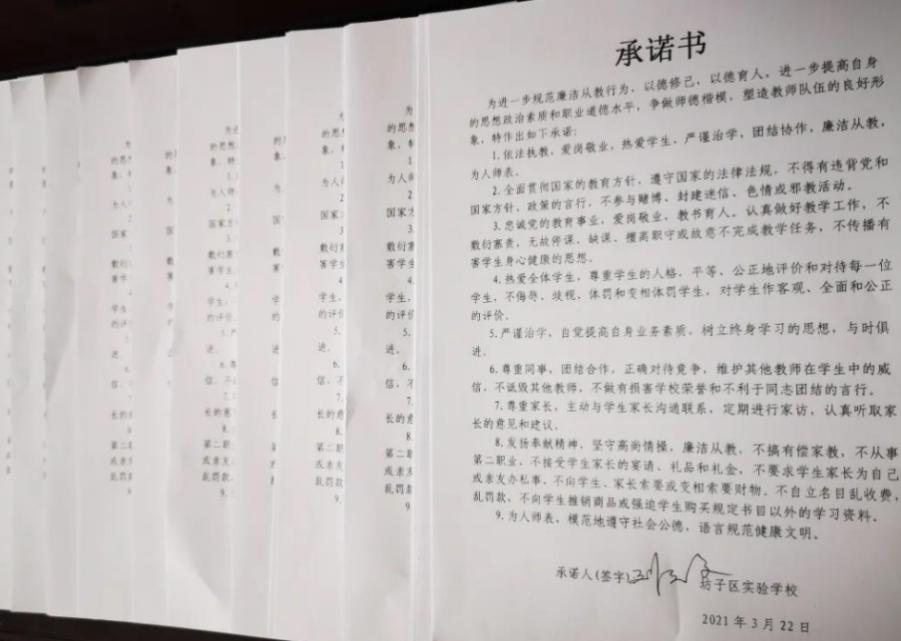 承诺书
为进一步规范廉洁从教行为，以德修己，以德育人，进一步提高自身
的思想政治素质和职业道德水平，争做师德楷模，塑造教师队伍的良好形
象，特作出如下承诺：
1.依法执教，爱岗敬业，热爱学生，严谨治学，团结协作，廉洁从教，
为人师表。
2.全面贯彻国家的教育方针，遵守国家的法律法规，不得有违背党和
国家方针、政策的言行，不参与赌博、封建迷信、色情或邪教活动。
3.忠诚党的教育事业，爱岗敬业，教书育人。认真做好教学工作，不
敷衍塞责，无故停课、缺课、擅离职守或故意不完成教学任务，不传播有
害学生身心健康的思想。
4.热爱全体学生，尊重学生的人格，平等、公正地评价和对待每一位
学生，不侮辱、歧视、体罚和变相体罚学生，对学生作客观、全面和公正
的评价。
5.严谨治学，自觉提高自身业务素质，树立终身学习的思想，与时俱
进。
6.尊重同事，团结合作，正确对待竞争，维护其他教师在学生中的威
信，不诋毁其他教师，不做有损害学校荣誉和不利于同志团结的言行。
7.尊重家长，主动与学生家长沟通联系，定期进行家访，认真听取家
长的意见和建议。
8.发扬奉献精神，坚守高尚情操，廉洁从教，不搞有偿家教，不从事
第二职业，不接受学生家长的宴请、礼品和礼金，不要求学生家长为自己
或亲友办私事，不向学生、家长索要或变相索要财物。不自立名目乱收费，
乱罚款，不向学生推销商品或强迫学生购买规定书目以外的学习资料。
9.为人师表，模范地遵守社会公德，语言规范健康文明。
承诺人(签字)
坊子区实验学校
2021年3月22日